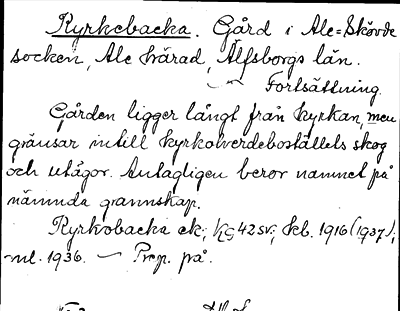 Kyrkebacka. Gård i Ale-Skövde
socken, Ale härad, Älfsborgs län.
— Fortsättning.
Gården ligger långt från kyrkan, men
gränsar intill kyrkolverdeboställets skog
och utägor. Antagligen beror namnet på
nämnda grannskap.
Kyrkobacka ek; kg 42 sv.; kb. 1916 (1937);
ml. 1936. — Prep. på.